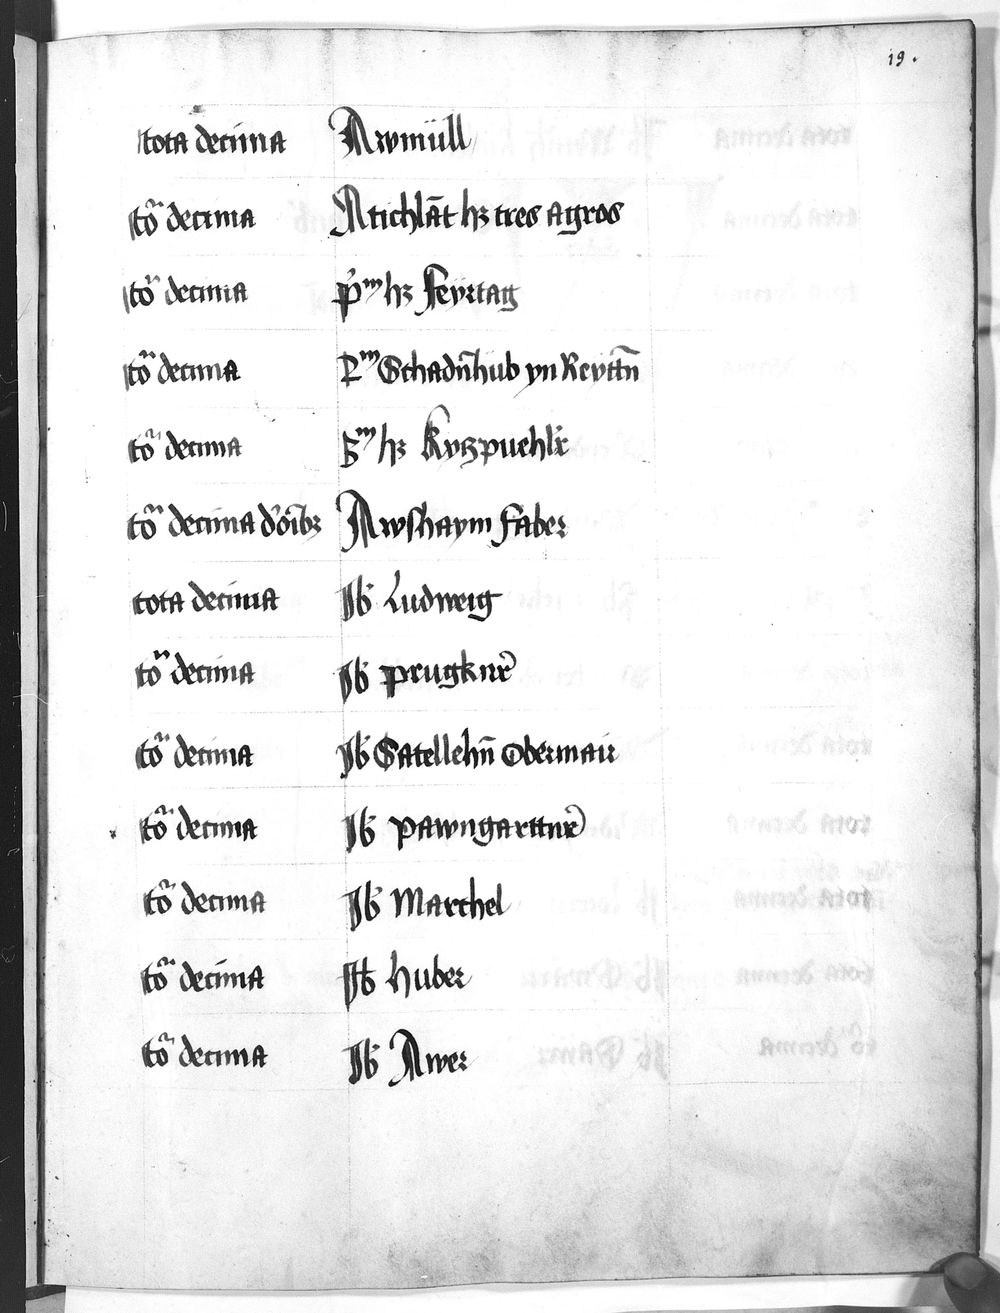 19.
tota decima Awmüll
to᷑ decima Aichlāt hꝫ tres agros
to᷑ decima p̄m hꝫ Feyrtag
to᷑ decima Pm Schadn̄hub yn Reyttn̄
to᷑ decima hꝫ Kyczpuehlr̄
to᷑ decima Awshaym faber
tota decima Jb̄ Ludweig
to᷑ decima Jb̄ prugknr̄
to᷑ decima Jb̄ Satellehn̄ Obermair
to᷑ decima Jb̄ pawngarttnr̄
to᷑ decima Jb̄ Marchel
to᷑ decima Jb̄ huber
to᷑ decima Jb̄ Awer